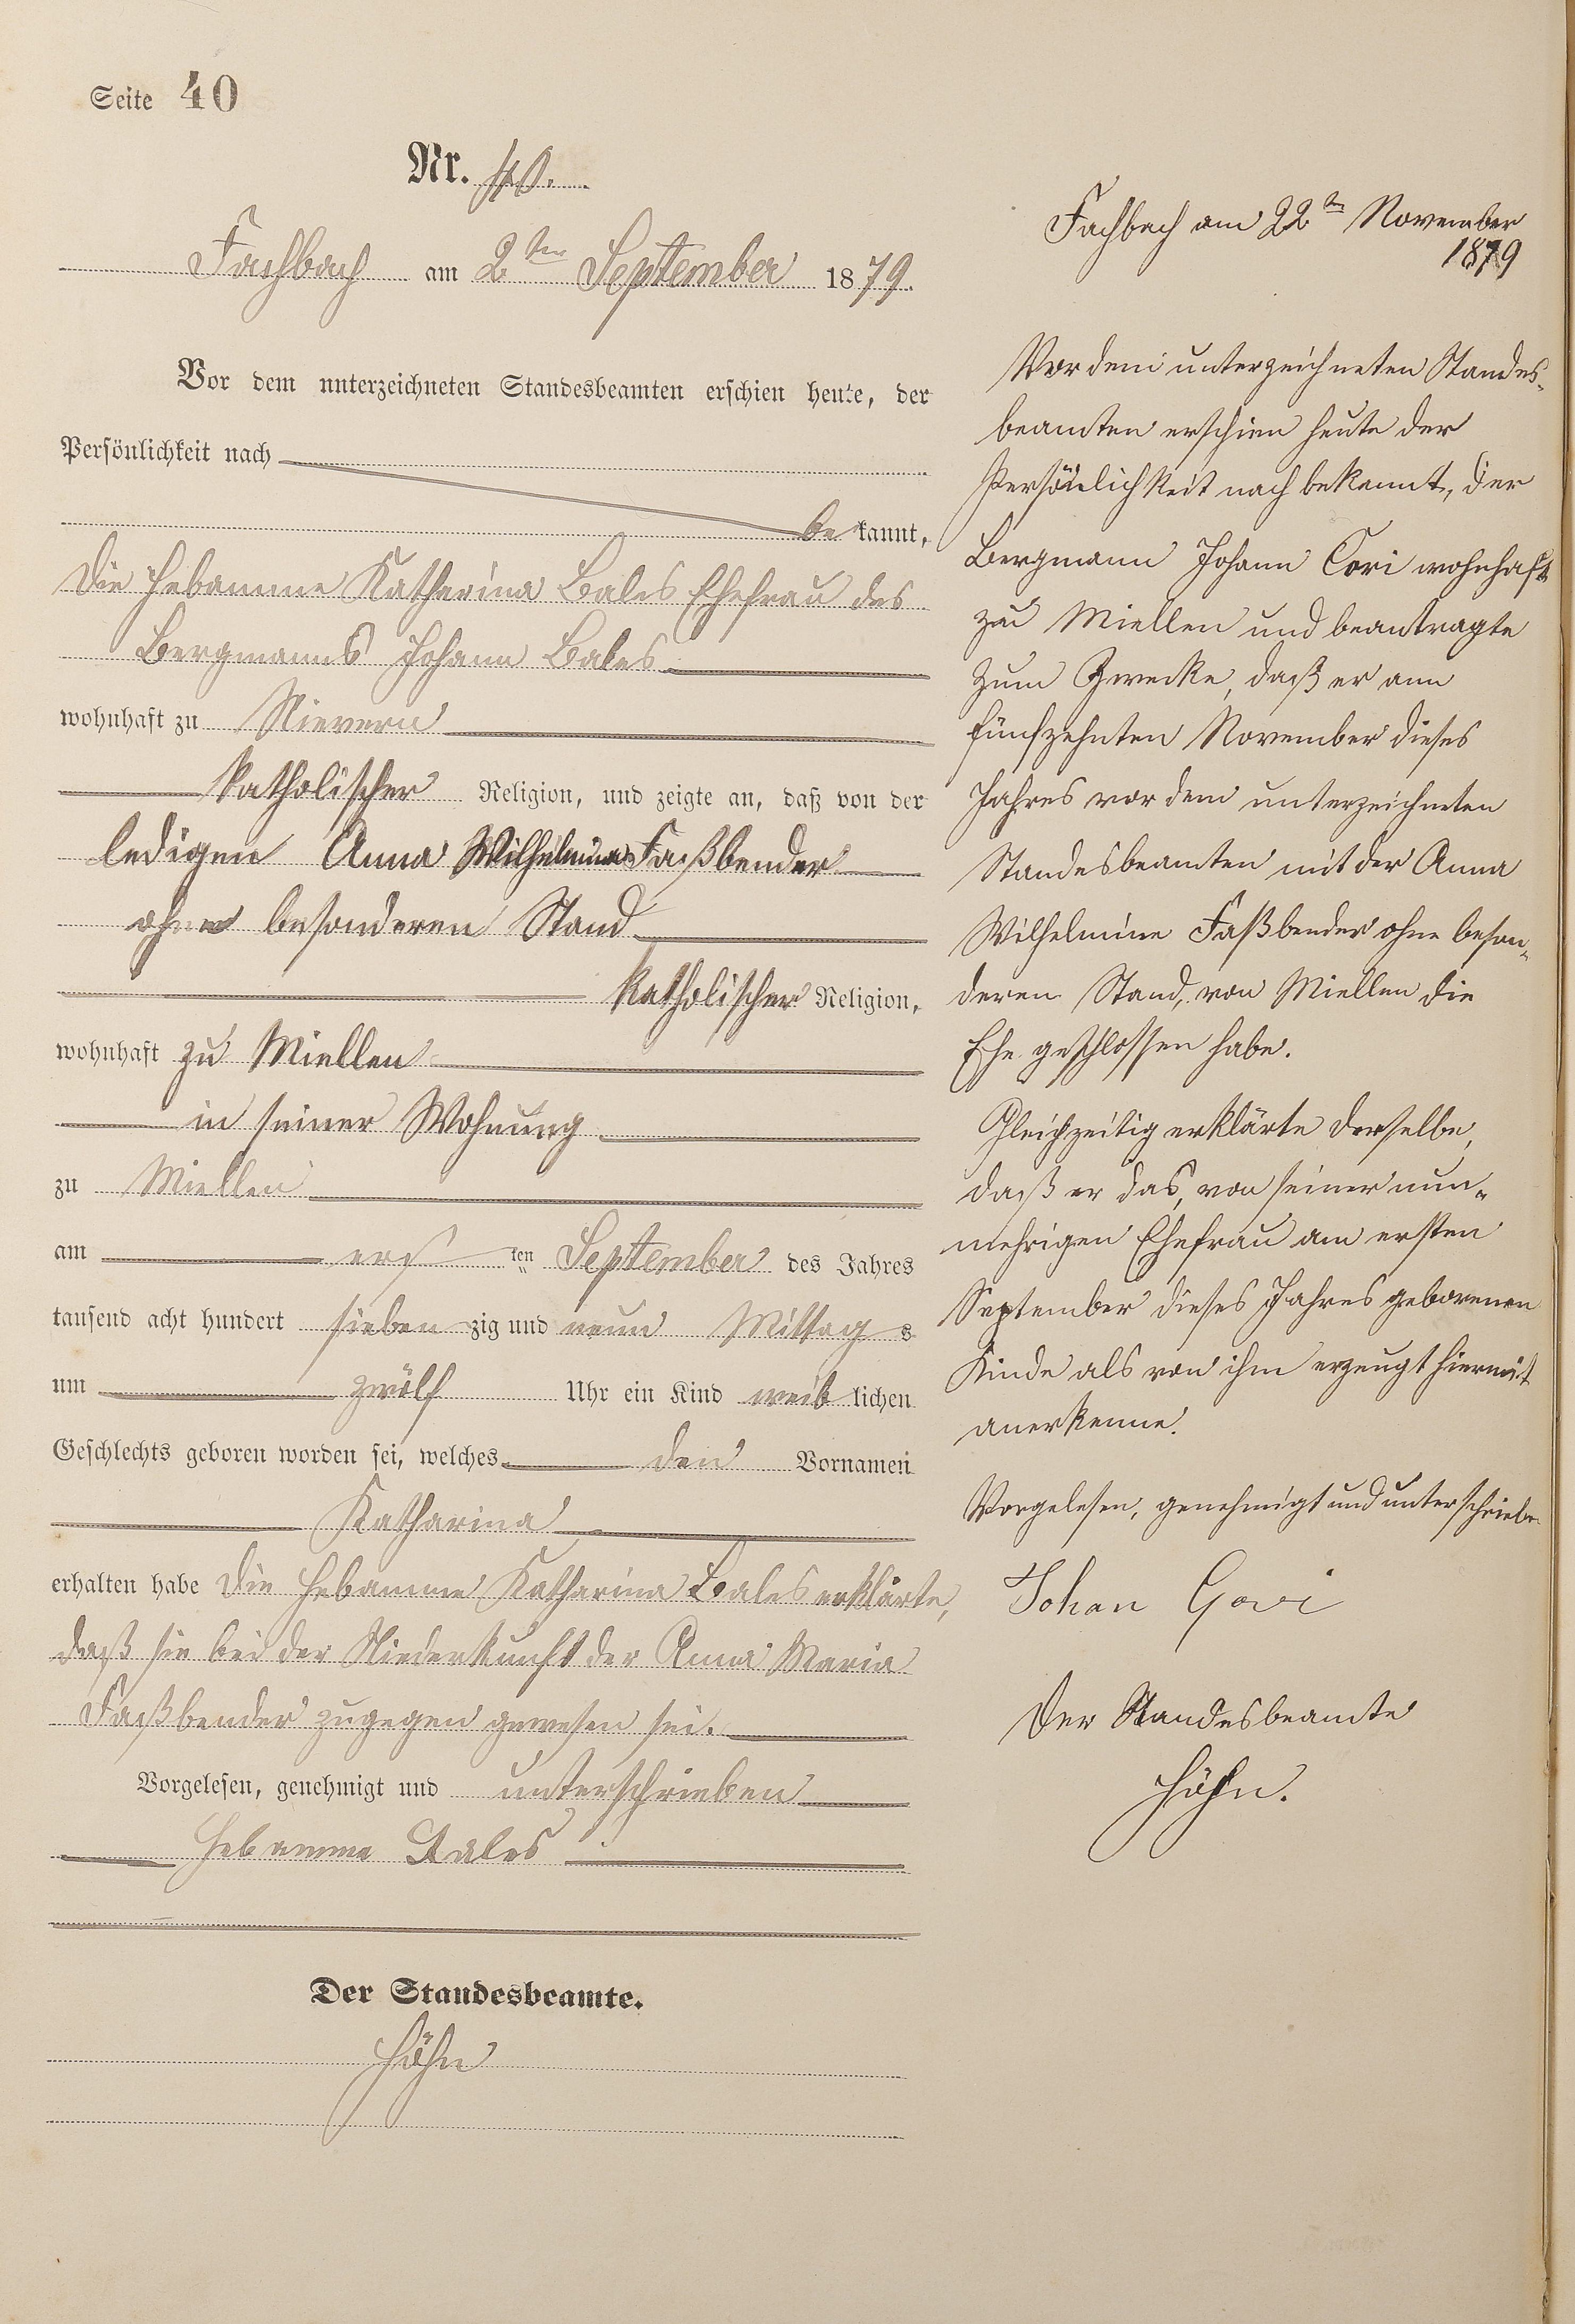 Seite 40
Nr. 40.
Fachbach am 2ten September 1879.
Vor dem unterzeichneten Standesbeamten erschien heute, der
Persönlichkeit nach
be kannt,
die Hebamme Katharina Bales Ehefrau des
Bergmanns Johann Bales
wohnhaft zu Nievern
katholischer Religion, und zeigte an, daß von der
ledigen Anna Wilhelmina Faßbender
ohne besonderen Stand
katholischer Religion,
wohnhaft zu Miellen
in seiner Wohnung
zu Miellen
am ers ten September des Jahres
tausend acht hundert sieben zig und neun Mittag s
um zwölf Uhr ein Kind weib lichen
Geschlechts geboren worden sei, welches den Vornamen
Katharina
erhalten habe die Hebamme Katharina Bales erklärte,
daß sie bei der Niederkunft der Anna Maria
Faßbender zugegen gewesen sei.
Vorgelesen, genehmigt und unterschrieben
Hebamme Bales
Der Standesbeamte.
Höhn
Fachbach am 22ten November
1879
Vor dem unterzeichneten Standes-
beamten erschien heute der
Persönlichkeit nach bekannt, der
Bergmann Johann Cori wohnhaft
zu Miellen und beantragte
zum Zwecke, daß er am
fünfzehnten November dieses
Jahres vor dem unterzeichneten
Standesbeamten mit der Anna
Wilhelmine Faßbender ohne beson-
deren Stand, von Miellen die
Ehe geschlossen habe.
Gleichzeitig erklärte derselbe,
daß er das, von seiner nun-
mehrigen Ehefrau am ersten
September dieses Jahres geborenen
Kinde als von ihm erzeugt hiermit
anerkenne.
Vorgelesen, genehmigt und unterschrieben
Johan Gori
Der Standesbeamte
Höhn.